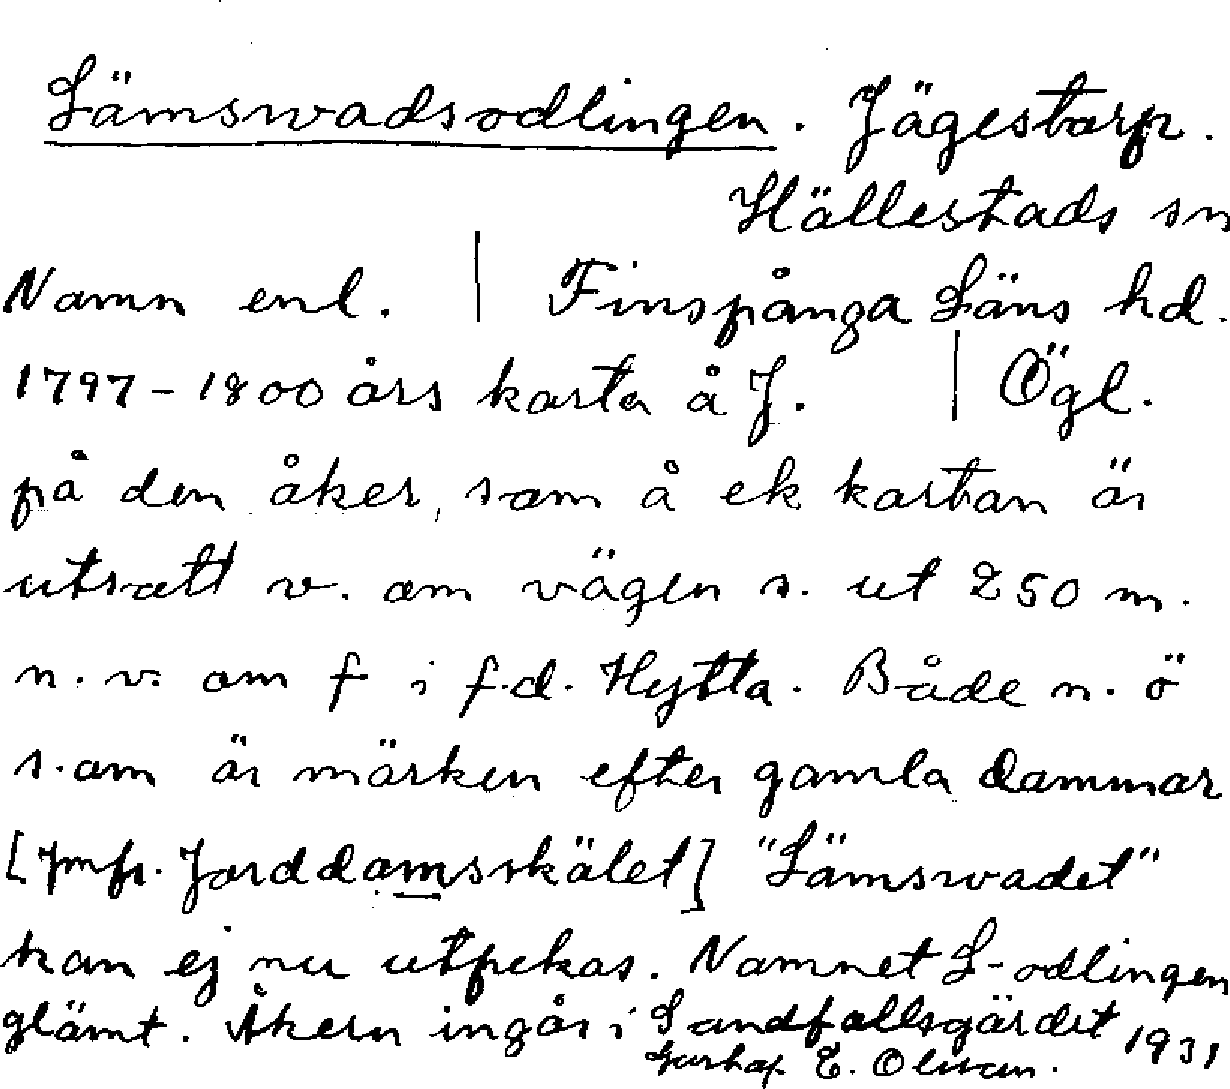 Lämswadsodlingen. Jägestorp.
Hällestads sn
Namn enl. | Finspånga Läns hd.
1797-1800 års karta å J. | Ögl.
på den åker, som å ek kartan är
utsatt v. om vägen s. ut 250 m.
n. v. om f i f.d. Hytta. Både n. o
s. om är märken efter gamla dammar
[Jmfr. Jorddamsskälet] "Lämswadet"
kan ej nu utpekas. Namnet L-odlingen
glömt. Åkern ingår i Sandfallsgärdet 1931
Gustaf E. Olsson.